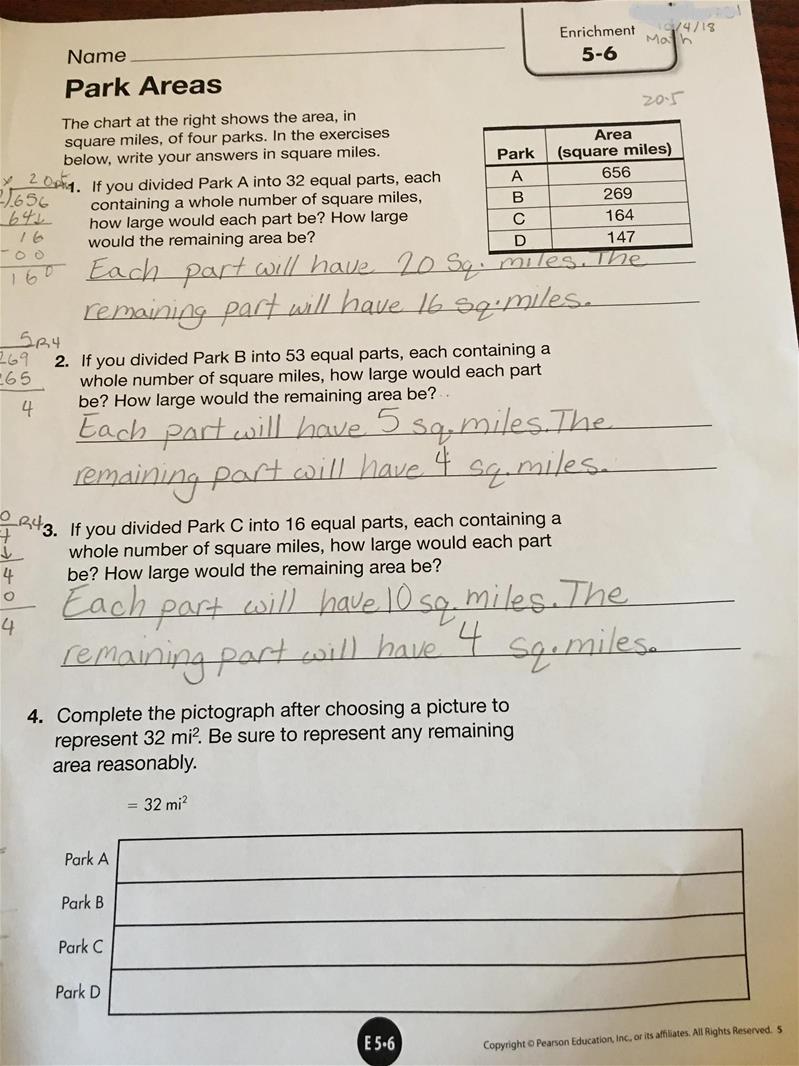 Enrichment
10/4/18
Math
5-6
Name
Park Areas
20.5
The chart at the right shows the area, in
square miles, of four parks. In the exercises
below, write your answers in square miles.
Park Area (square miles)
A 656
B 269
C 164
D 147
1. If you divided Park A into 32 equal parts, each
containing a whole number of square miles,
how large would each part be? How large
would the remaining area be?
656
64↓
16
-00
160
Each part will have 20 sq. miles. The
remaining part will have 16 sq. miles.
5R4
269
265
4
2. If you divided Park B into 53 equal parts, each containing a
whole number of square miles, how large would each part
be? How large would the remaining area be?
Each part will have 5 sq. miles. The
remaining part will have 4 sq. miles.
0 R4
4
↓
4
0
4
3. If you divided Park C into 16 equal parts, each containing a
whole number of square miles, how large would each part
be? How large would the remaining area be?
Each part will have 10 sq. miles. The
remaining part will have 4 sq. miles.
4. Complete the pictograph after choosing a picture to
represent 32 mi². Be sure to represent any remaining
area reasonably.
= 32 mi²
Park A
Park B
Park C
Park D
E 5•6
Copyright © Pearson Education, Inc., or its affiliates. All Rights Reserved. 5